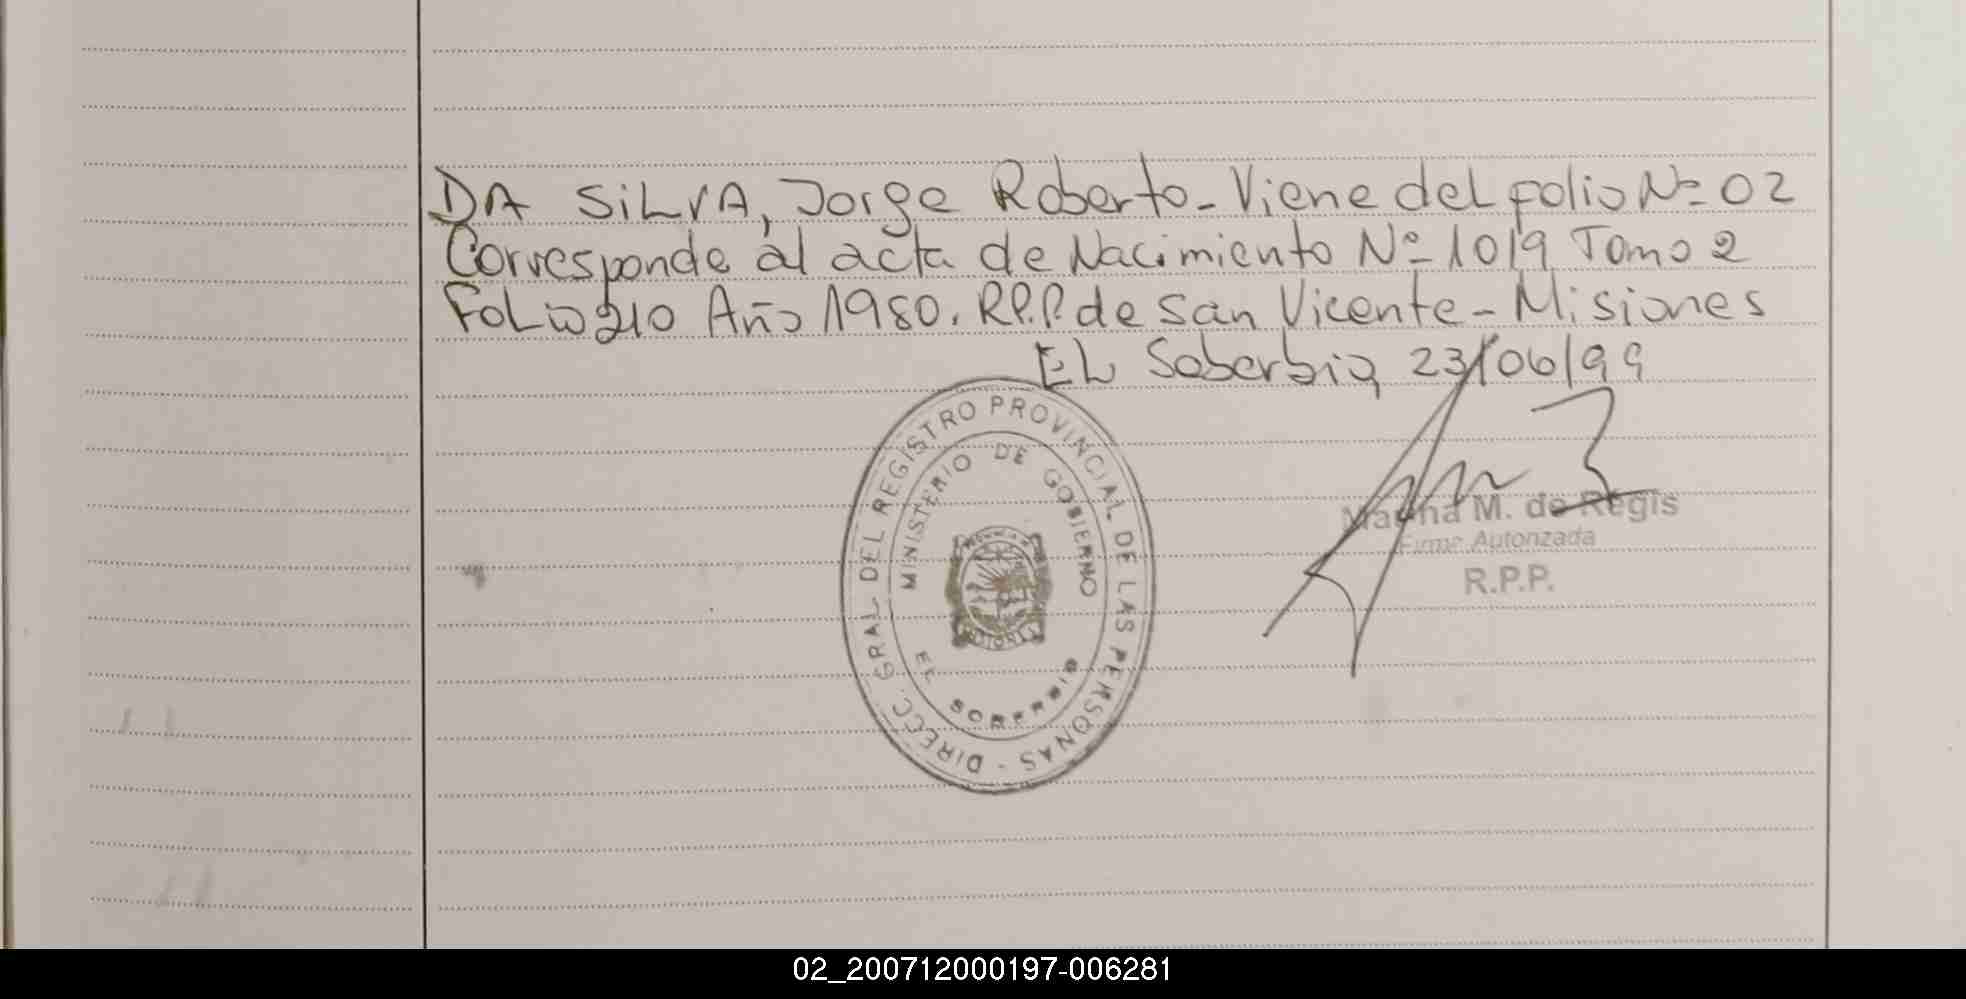 DA SiLVA, Jorge Roberto - Viene del folio Nº 02
Corresponde al acta de Nacimiento Nº 1019 Tomo 2
FoLio 210 Año 1980. R.P.P. de San Vicente - Misiones
EL Soberbio, 23/06/99
DIRECC. GRAL. DEL REGISTRO PROVINCIAL DE LAS PERSONAS -
MINISTERIO DE GOBIERNO
MISIONES
EL SOBERBIO
M. de Regis
Firma Autorizada
R.P.P.
02_200712000197-006281